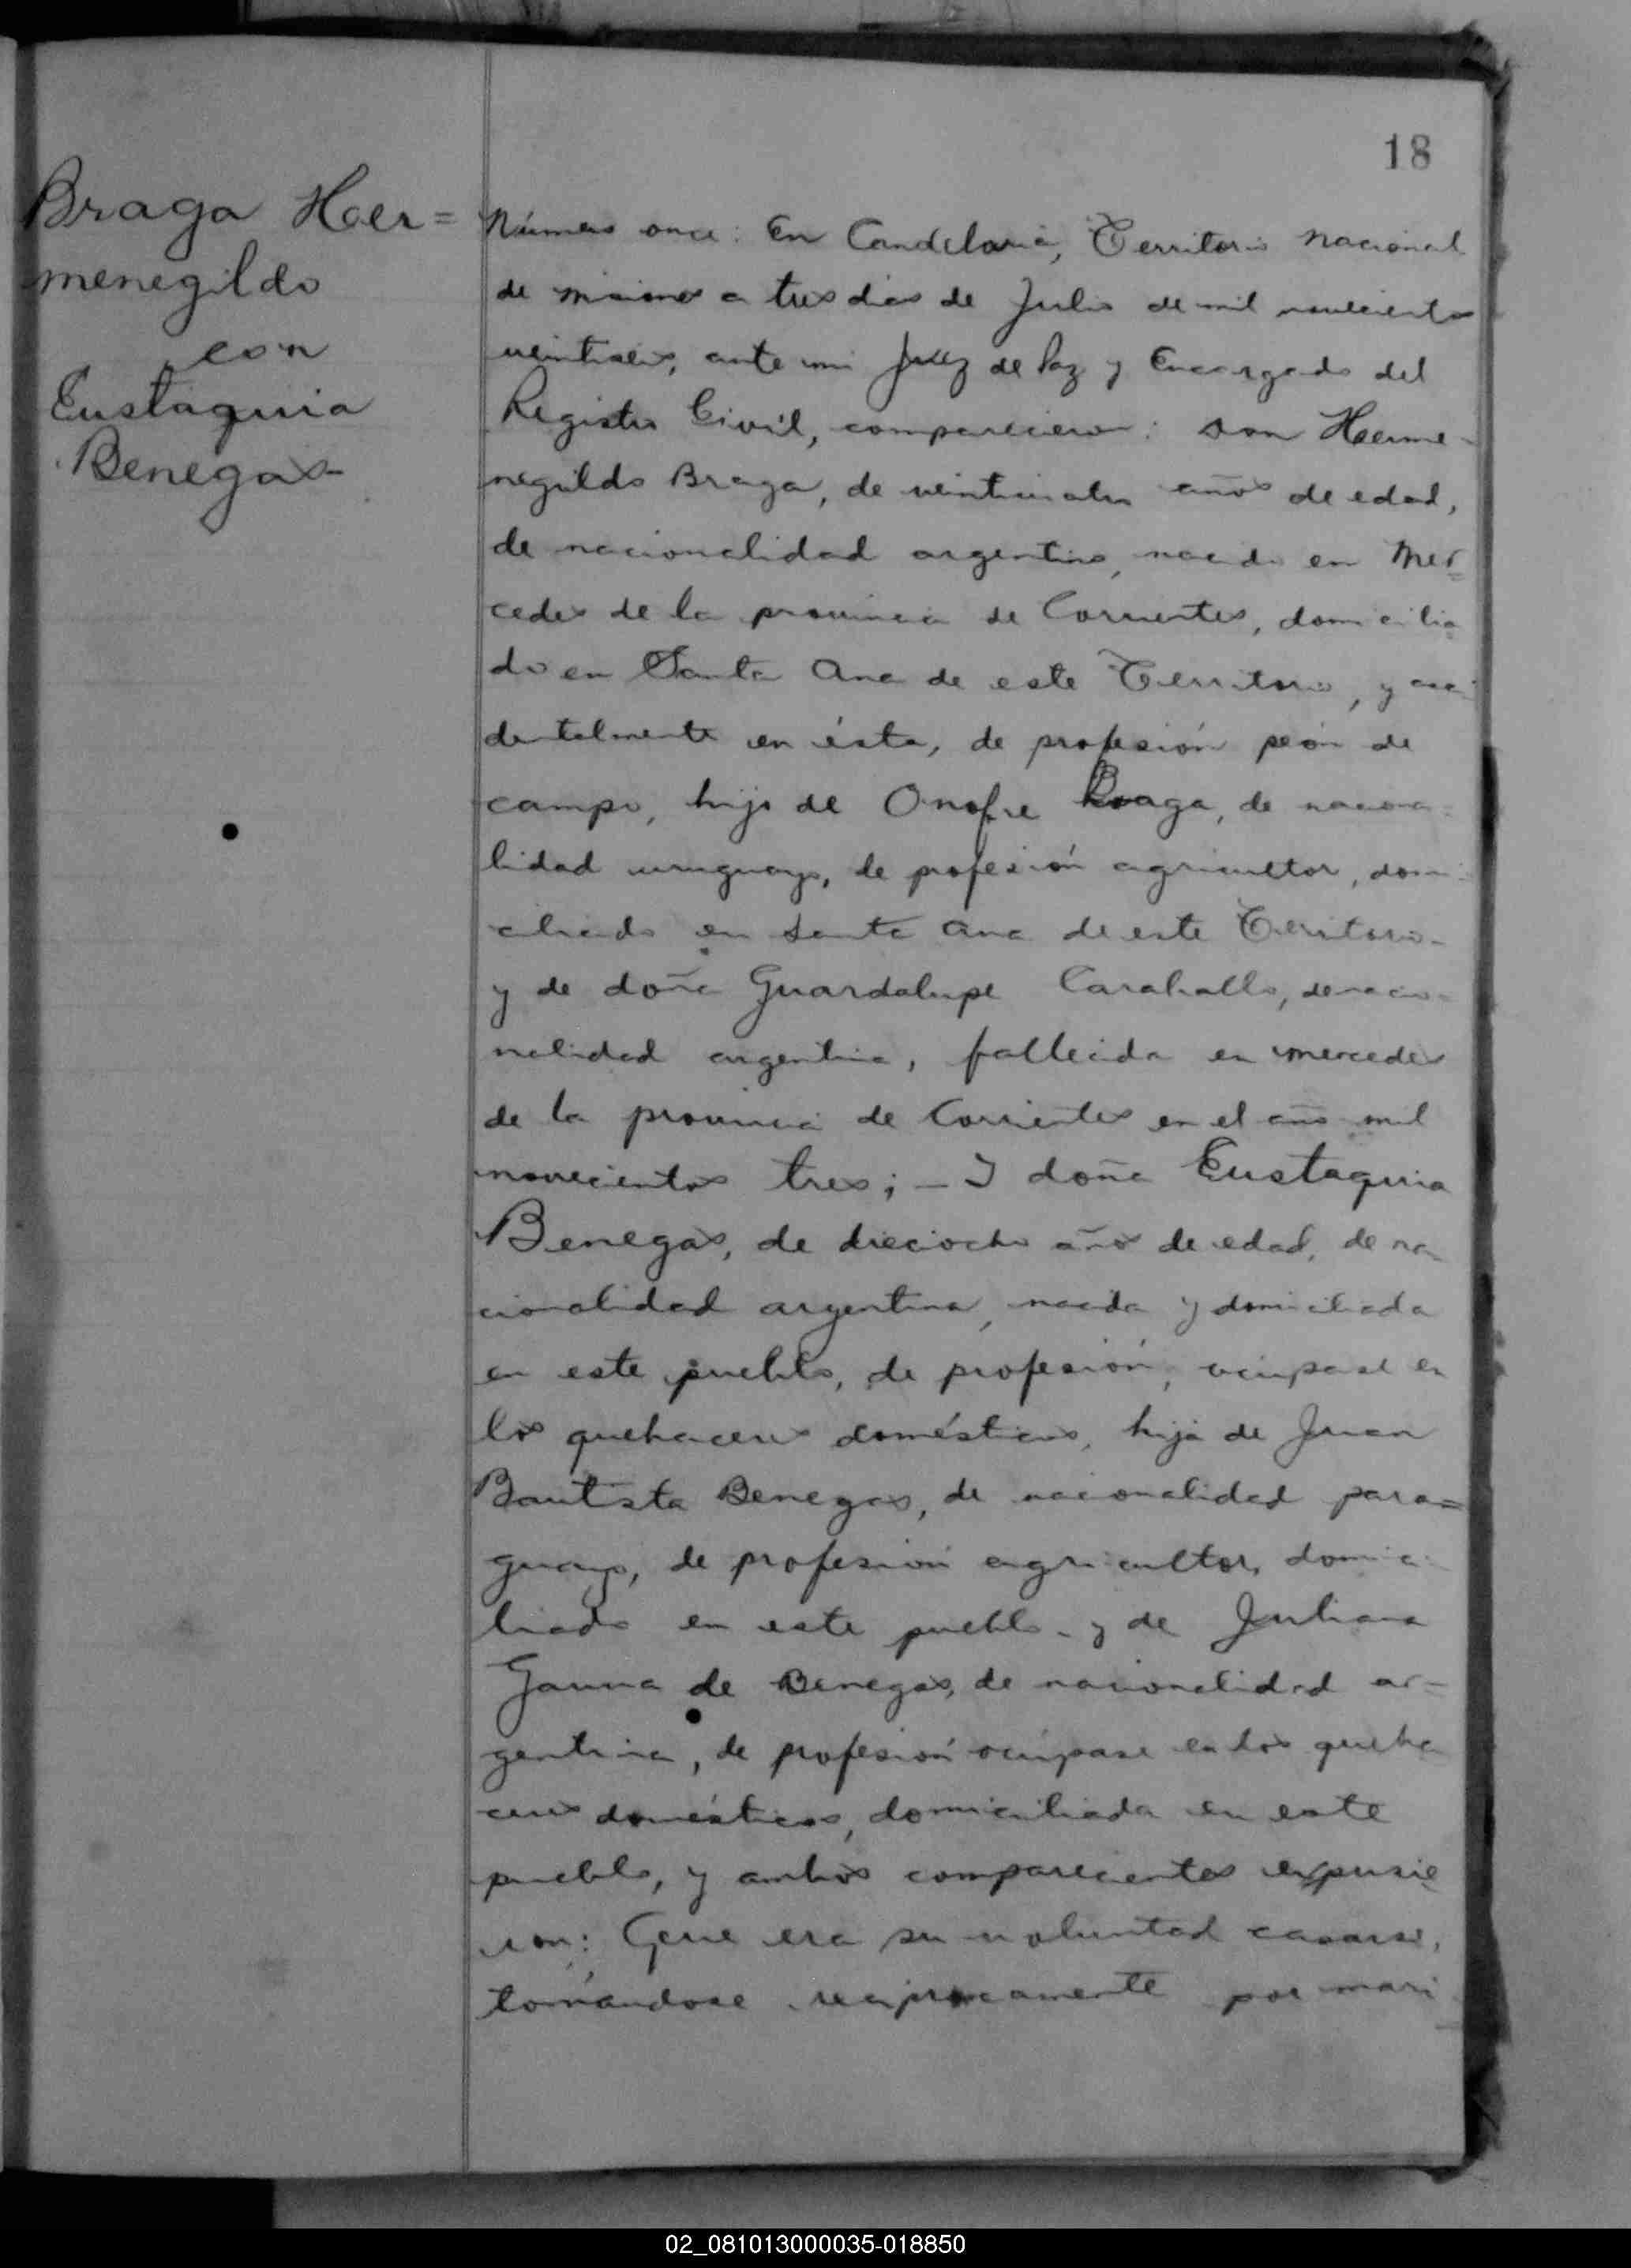 18
Braga Her=
menegildo
con
Eustaquia
Benegas-
Número once: En Candelaria, Territorio Nacional
de Misiones a tres dias de Julio de mil novecientos
veintiseis, ante mi Juez de Paz y Encargado del
Registro Civil, comparecieron: don Herme-
negildo Braga, de veinticuatro años de edad,
de nacionalidad argentino, nacido en Mer=
cedes de la provincia de Corrientes, domicilia
do en Santa Ana de este Territorio, y acci
dentalmente en ésta, de profesión peón de
campo, hijo de Onofre Braga, de naciona-
lidad uruguayo, de profesión agricultor, domi-
ciliado en Santa Ana de este Territorio-
y de doña Guardalupe Caraballo, de nacio-
nalidad argentina, fallecida en Mercedes
de la provincia de Corrientes en el año mil
novecientos tres; - I doña Eustaquia
Benegas, de dieciocho años de edad, de na
cionalidad argentina, nacida y domiciliada
en este pueblo, de profesión, ocúpase en
los quehaceres domésticos, hija de Juan
Bautista Benegas, de nacionalidad para=
guayo, de profesión agricultor, domici-
liado en este pueblo- y de Juliana
Gauna de Benegas, de nacionalidad ar=
gentina, de profesión ocúpase en los queha
ceres domésticos, domiciliada en este
pueblo, y ambos comparecientes expusie
ron: Que era su voluntad casarse,
tomándose reciprocamente por mari
02_081013000035-018850